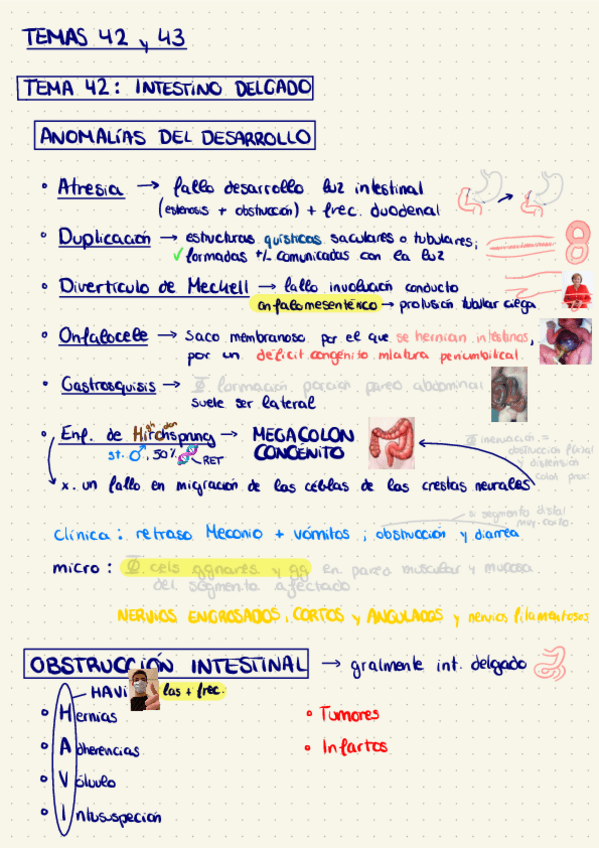 TEMAS 42 y 43
TEMA 42: INTESTINO DELGADO
ANOMALÍAS DEL DESARROLLO
• Atresia → fallo desarrollo luz intestinal
(estenosis + obstrucción) + frec. duodenal
• Duplicación → estructuras quísticas saculares o tubulares;
✓ formadas +/- comunicadas con la luz
• Divertículo de Meckell → fallo involución conducto
onfalomesentérico → protusión tubular ciega
• Onfalocele → saco membranoso por el que se hernian intestinos,
por un déficit congénito mlatura periumbilical.
• Gastrosquisis → formación porción pared abdominal
suele ser lateral
• Enf. de Hirchsprung → MEGACOLON
CONGÉNITO
st. ♂, 50% RET
inervación =
obstrucción flcial
y distensión
colon prox.
x. un fallo en migración de las céblas de las crestas neurales
si segmento distal
muy corto.
Clínica: retraso Meconio + vómitos; obstrucción y diarrea
micro: cels ggnares y gg en pared muscular y mucosa
del segmento afectado
NERVIOS ENGROSADOS, CORTOS y ANGULADOS y nervios filamentosos
OBSTRUCCIÓN INTESTINAL → gralmente int. delgado
HAVI las + frec.
• Hernias
• Adherencias
• Vólvulo
• Intususpeción
• Tumores
• Infartos